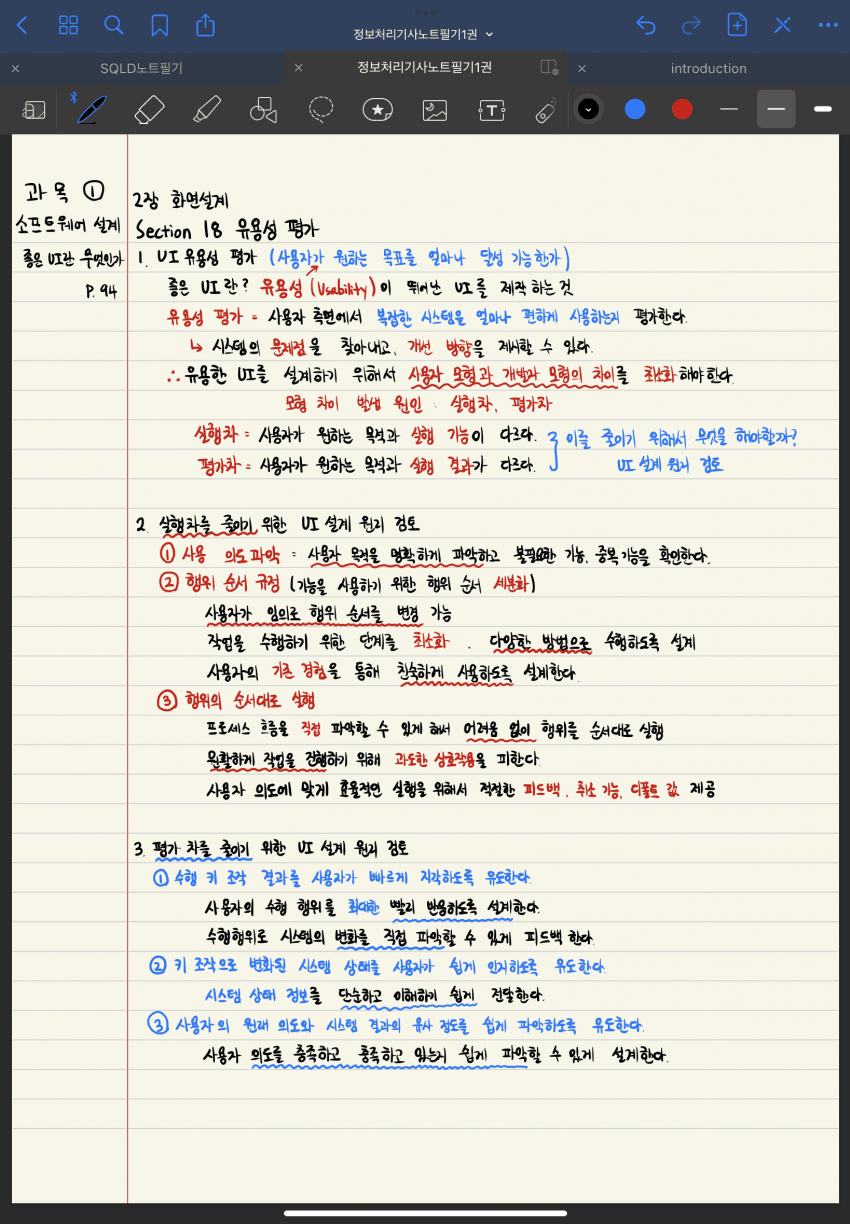 정보처리기사노트필기1권
SQLD노트필기
정보처리기사노트필기1권
introduction
과목 ①
소프트웨어 설계
좋은 UI란 무엇인가
P. 94
2장 화면설계
Section 18 유용성 평가
1. UI 유용성 평가 (사용자가 원하는 목표를 얼마나 달성 가능한가)
좋은 UI란? 유용성(Usability)이 뛰어난 UI를 제작하는 것
유용성 평가 = 사용자 측면에서 복잡한 시스템을 얼마나 편하게 사용하는지 평가한다.
↳ 시스템의 문제점을 찾아내고, 개선 방향을 제시할 수 있다.
∴ 유용한 UI를 설계하기 위해서 사용자 모형과 개발자 모형의 차이를 최소화해야한다.
모형 차이 발생 원인 : 실행차, 평가차
실행차 = 사용자가 원하는 목적과 실행 기능이 다르다.
평가차 = 사용자가 원하는 목적과 실행 결과가 다르다.
이를 줄이기 위해서 무엇을 해야할까?
UI 설계 원리 검토
2. 실행차를 줄이기 위한 UI 설계 원리 검토
① 사용 의도파악 = 사용자 목적을 명확하게 파악하고 불필요한 기능, 중복기능을 확인한다.
② 행위 순서 규정 (기능을 사용하기 위한 행위 순서 세분화)
사용자가 임의로 행위 순서를 변경 가능
작업을 수행하기 위한 단계를 최소화. 다양한 방법으로 수행하도록 설계
사용자의 기존 경험을 통해 친숙하게 사용하도록 설계한다.
③ 행위의 순서대로 실행
프로세스 흐름을 직접 파악할 수 있게 해서 어려움 없이 행위를 순서대로 실행
원활하게 작업을 진행하기 위해 과도한 상호작용을 피한다.
사용자 의도에 맞게 효율적인 실행을 위해서 적절한 피드백, 취소 기능, 디폴트 값 제공
3. 평가 차를 줄이기 위한 UI 설계 원리 검토
① 수행 키 조작 결과를 사용자가 빠르게 지각하도록 유도한다.
사용자의 수행 행위를 최대한 빨리 반응하도록 설계한다.
수행행위로 시스템의 변화를 직접 파악할 수 있게 피드백 한다.
② 키 조작으로 변화된 시스템 상태를 사용자가 쉽게 인지하도록 유도한다.
시스템 상태 정보를 단순하고 이해하기 쉽게 전달한다.
③ 사용자의 원래 의도와 시스템 결과의 유사 정도를 쉽게 파악하도록 유도한다.
사용자 의도를 충족하고 충족하고 있는지 쉽게 파악할 수 있게 설계한다.